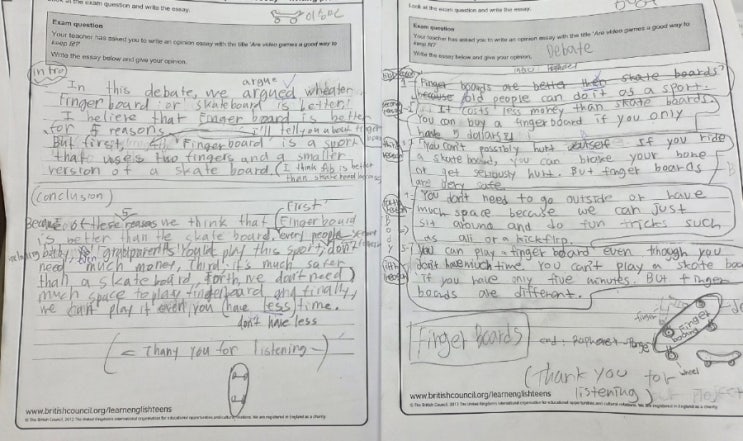 Look at the exam question and write the essay.
Exam question
Your teacher has asked you to write an opinion essay with the title 'Are video games a good way to
keep fit?'
Write the essay below and give your opinion.
intro
In this debate, we argued wheater
argue
Finger board or skateboard is better!
I believe that Finger board is better
for 5 reasons.
I'll tell you about finger
But first, Finger board is a sport
that uses two fingers and a smaller
version of a skate board. (I think fb is better
than skate board because
(conclusion)
5 First
Because of these reasons we think that Finger board
is better than the skate board, every people
grandparents could play this sport, don't
need much money, third it's much safer
than a skate board, forth, we don't need
much space to play fingerboard and finally,
we can play it even you have less time.
don't have less
(Thany you for listening)
www.britishcouncil.org/learnenglishteens
Look at the exam question and write the essay.
Exam question
Your teacher has asked you to write an opinion essay with the title 'Are video games a good way to
keep fit?'
Debate
Write the essay below and give your opinion.
Finger boards are better then skate boards?
because old people can do it as a sport.
It costs less money than skate boards.
You can buy a finger board if you only
have 5 dollars!
You can't possibly hurt yourself if you ride
a skate board, you can broke your bone
or get seriously hurt. But finger boards
are very safe
You don't need to go outside or have
much space because we can just
sit around and do fun tricks such
as ollie or a kickflip.
5 You can play a finger board even though you
don't have much time. You can't play a skate boa
if you have only five minutes. But finger
boards are different.
Finger boards
end:
finger
Finger
board
wheel
(Thank you for
listening)
www.britishcouncil.org/learnenglishteens